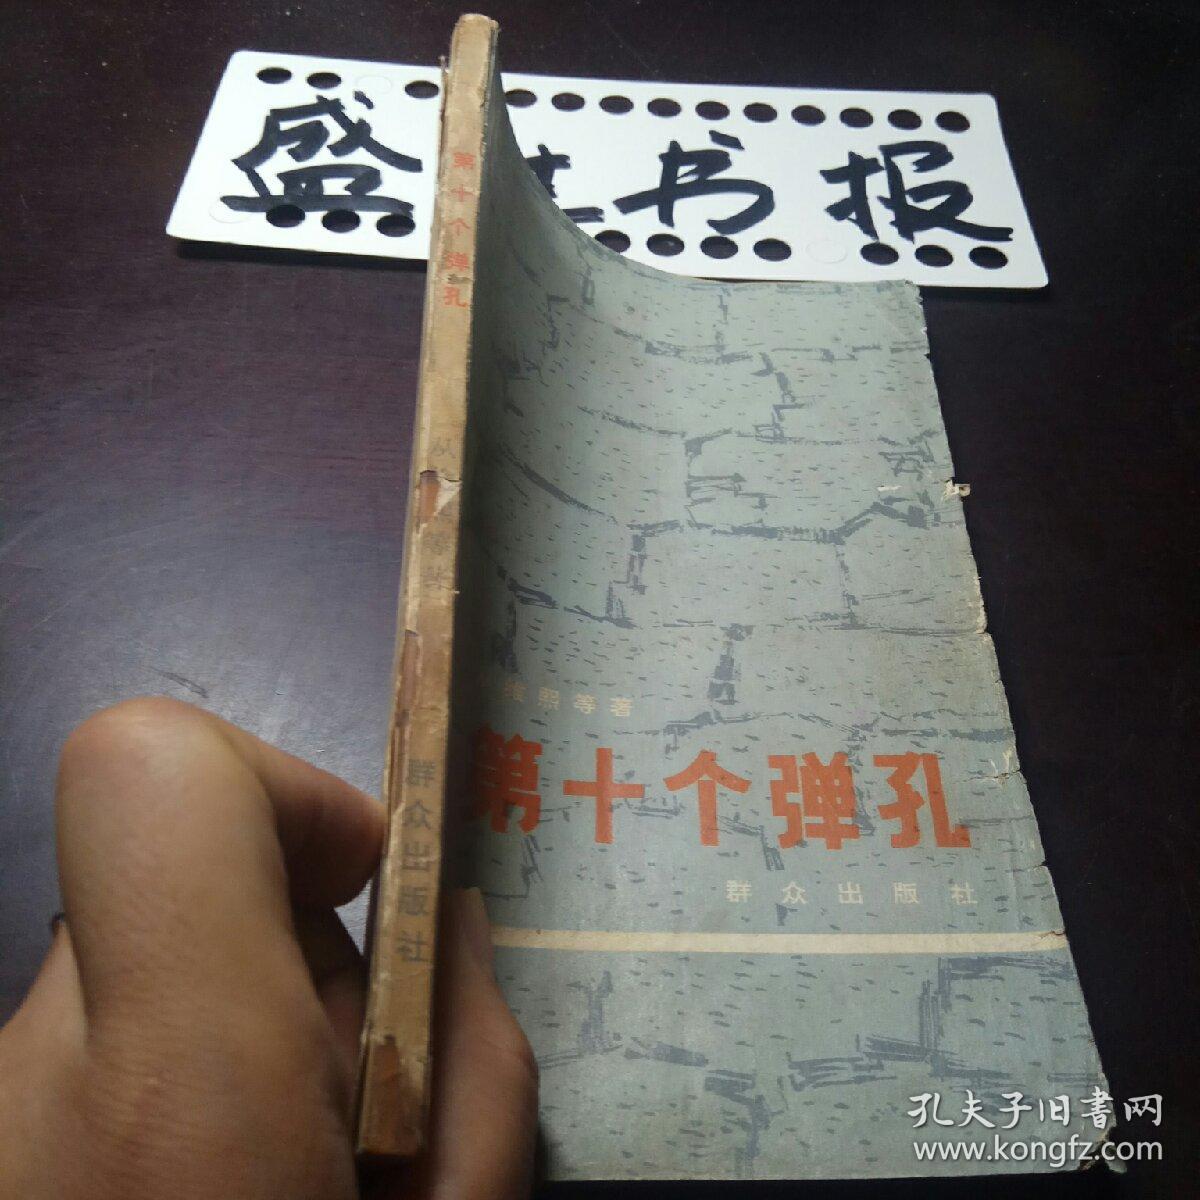 盛世书报
第十个弹孔
群众出版社
维熙等著
第十个弹孔
群众出版社
孔夫子旧书网
www.kongfz.com